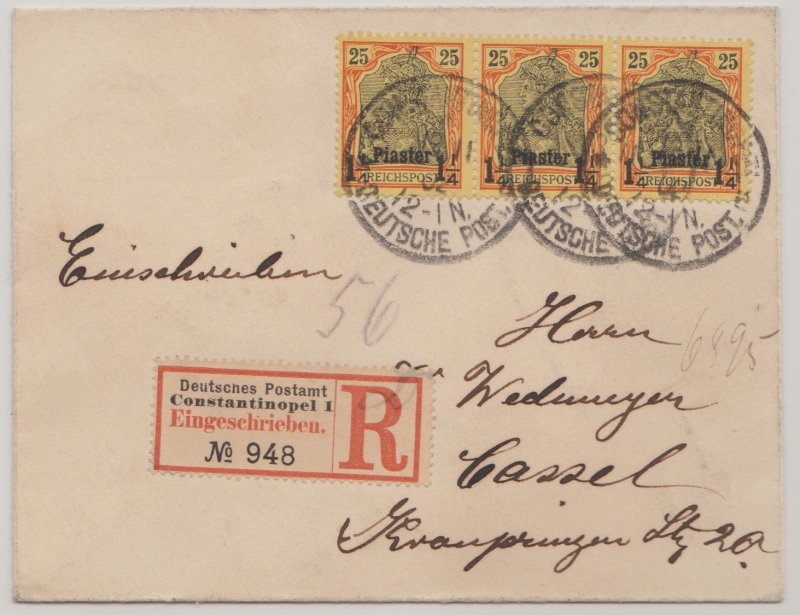 25 25 25 25 25 25
Piaster Piaster Piaster
1 1/4 1 1/4 1 1/4 1 1/4 1 1/4 1 1/4
REICHSPOST REICHSPOST REICHSPOST
12-1N. 12-1N.
DEUTSCHE POST. DEUTSCHE DEUTSCHE POST.
Einschreiben
56
Herrn
6895
Dr. Wedemeyer
Cassel
Kronprinzen Str 20
Deutsches Postamt
Constantinopel 1
Eingeschrieben.
№ 948
R